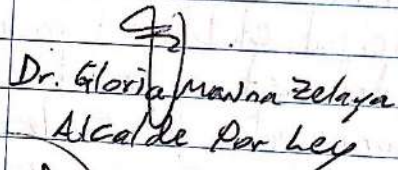 Dr. Gloria Marina Zelaya
Alcalde Por Ley